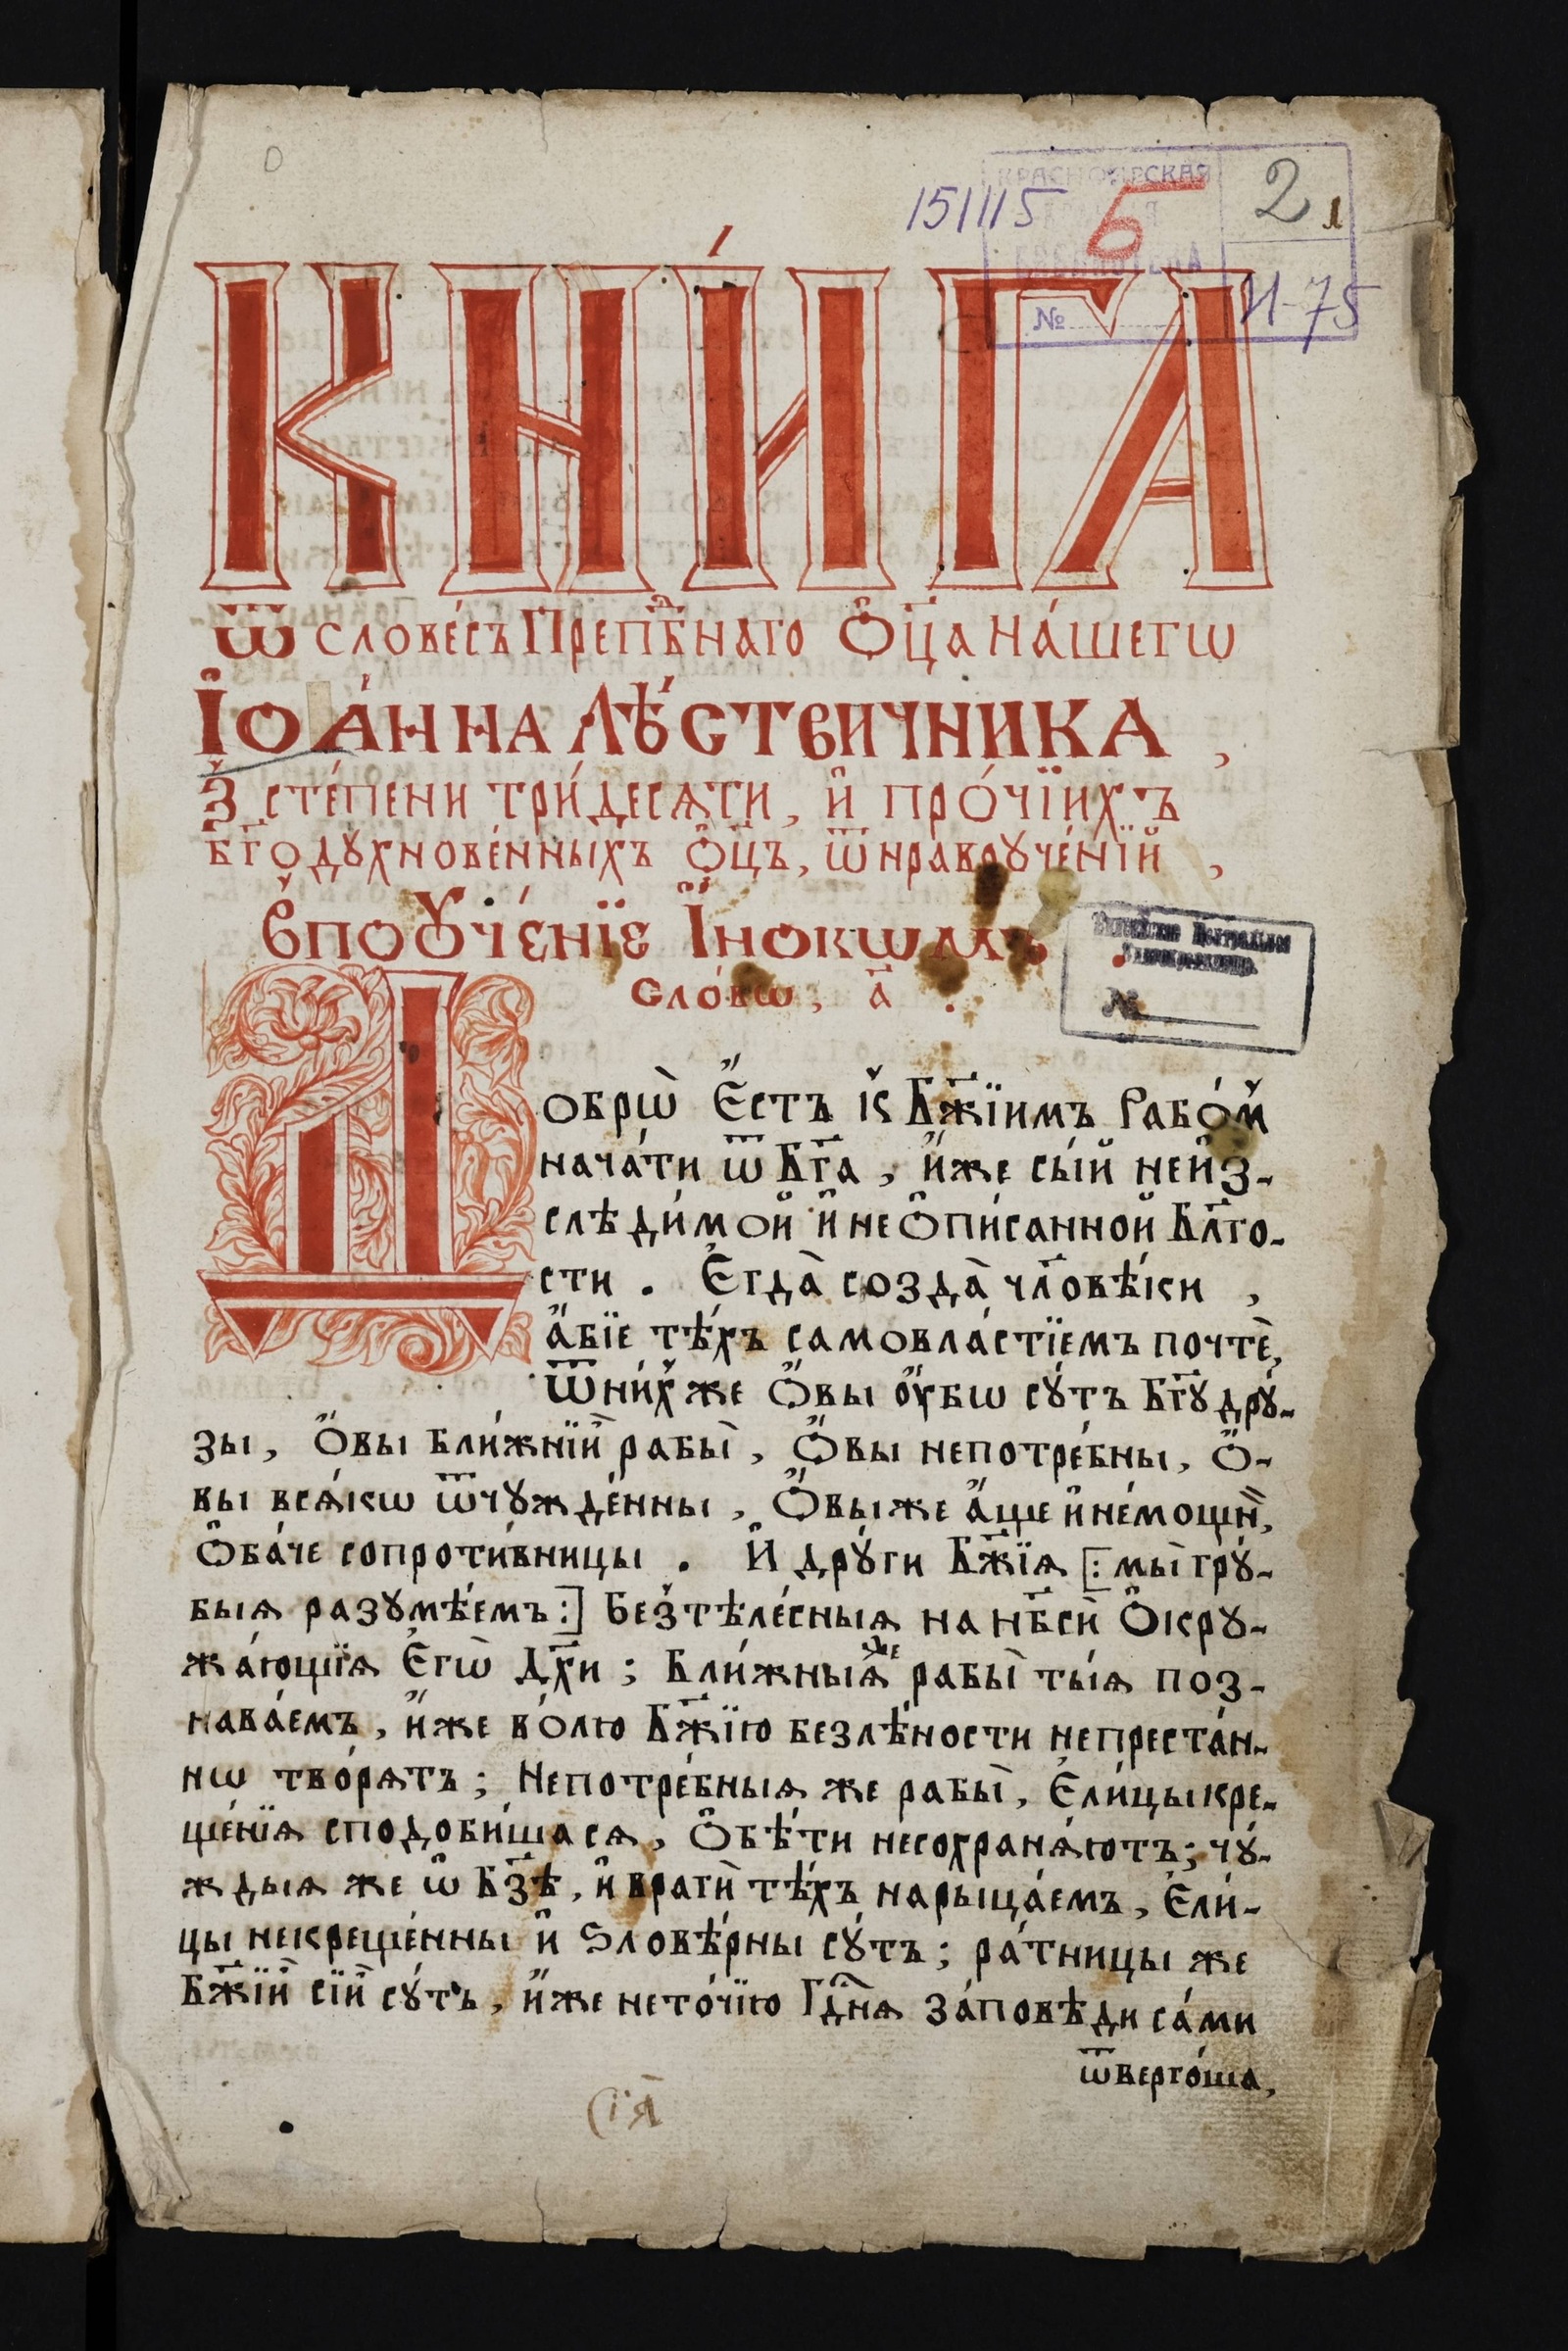 151115 Б 2 л
КРАСНОЯРСКАЯ
№ И-75
КНИ́ГА
Ѿ слове́съ Преп҃бнаго Ѻ҆ц҃а на́шегѡ
І҆оа́нна Лѣ́ствичника,
З̾ сте́пени три́десѧти, и҆ про́чїихъ
бг҃одꙋхнове́нныхъ Ѻ҆ц҃ъ, ѿ нравоꙋче́нїй,
в̾поꙋче́нїе І҆́нокѡмъ
сло́вѡ, а҃.
Добрѡ̀ Є҆́стъ к̾ Бж҃їимъ Рабо́м̾
нача́ти ѿ Бг҃а, и҆́же сы́й неиз-
слѣди́мой и҆ не Ѻ҆пи́санной Бл҃го-
сти. Є҆гда̀ созда̀ чл҃овѣ́ки,
а҆́бїе тѣ́хъ самовла́стїемъ почтѐ,
Ѿ ни́х̾ же Ѻ҆́вы ᲂу҆́бѡ сꙋ́тъ Бг҃ꙋ дрꙋ́-
зы, Ѻ҆́вы бли́жнїи̾ рабы̀, Ѻ҆́вы непотре́бны, Ѻ҆́-
вы всѧ́кѡ ѿчꙋжде́нны, Ѻ҆́вы же а҆́ще и҆ не́мощнїи,
Ѻ҆ба́че сопроти́вницы. И҆ дрꙋ́ги Бж҃їѧ [: мы̀ грꙋ́-
быѧ разꙋмѣ́емъ :] без̾тѣле́сныѧ на Нб҃сѝ Ѻ҆крꙋ-
жа́ющїѧ Є҆гѡ̀ Дх҃и; Бли́жныѧ же рабы̀ ты́ѧ поз-
нава́емъ, и҆́же во́лю Бж҃їю безлѣ́ности непреста́н-
нѡ творѧ́тъ; Непотре́бныѧ же рабы̀, Є҆ли́цы кре-
ще́нїѧ сподоби́шасѧ, Ѻ҆бѣ́ти несохранѧ́ютъ; чꙋ́-
ждыѧ же ѡ҆ Бз҃ѣ, и҆ врагѝ тѣ́хъ нарыца́емъ, Є҆ли́-
цы некреще́нны и҆ Ѕловѣ́рны сꙋ́тъ; ра́тницы же
Бж҃їи̾ сїи̾ сꙋ́тъ, и҆́же нето́чїю Гд҃нѧ за́повѣди са́ми
ѿверго́ша,